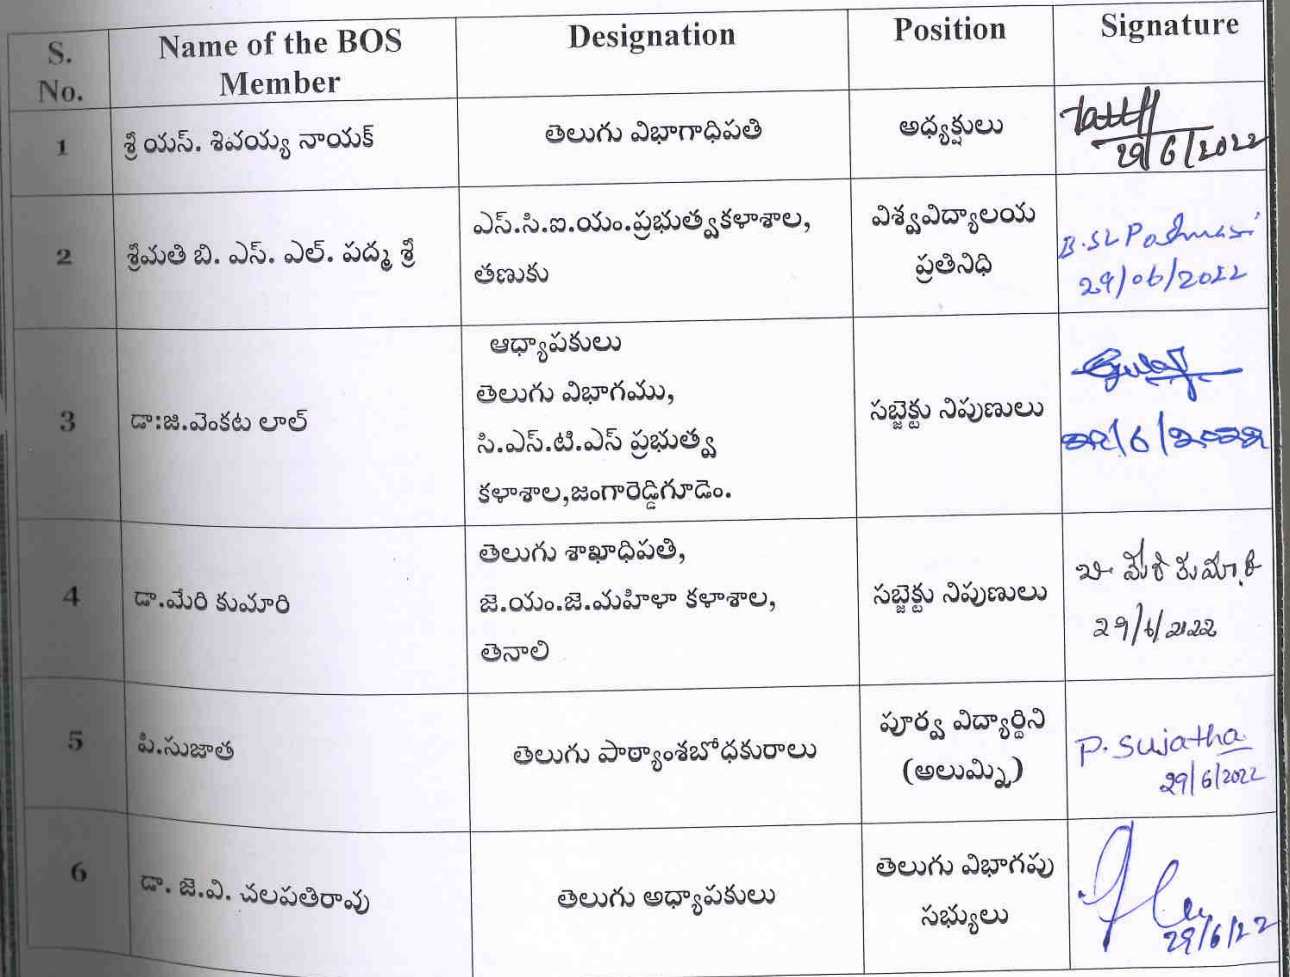 S. No.
Name of the BOS Member
Designation
Position
Signature
1
శ్రీ యస్. శివయ్య నాయక్
తెలుగు విభాగాధిపతి
అధ్యక్షులు
29/6/2022
2
శ్రీమతి బి. ఎస్. ఎల్. పద్మ శ్రీ
ఎస్.సి.ఐ.యం.ప్రభుత్వకళాశాల,
తణుకు
విశ్వవిద్యాలయ
ప్రతినిధి
B.SL Padmasri
29/06/2022
3
డా:జి.వెంకట లాల్
ఆధ్యాపకులు
తెలుగు విభాగము,
సి.ఎస్.టి.ఎస్ ప్రభుత్వ
కళాశాల,జంగారెడ్డిగూడెం.
సబ్జెక్టు నిపుణులు
4
డా.మేరి కుమారి
తెలుగు శాఖాధిపతి,
జె.యం.జె.మహిళా కళాశాల,
తెనాలి
సబ్జెక్టు నిపుణులు
మేరి కుమారి
29/6/2022
5
పి.సుజాత
తెలుగు పాఠ్యాంశబోధకురాలు
పూర్వ విద్యార్థిని
(అలుమ్ని)
P. Sujatha
29/6/2022
6
డా. జె.వి. చలపతిరావు
తెలుగు అధ్యాపకులు
తెలుగు విభాగపు
సభ్యులు
29/6/22